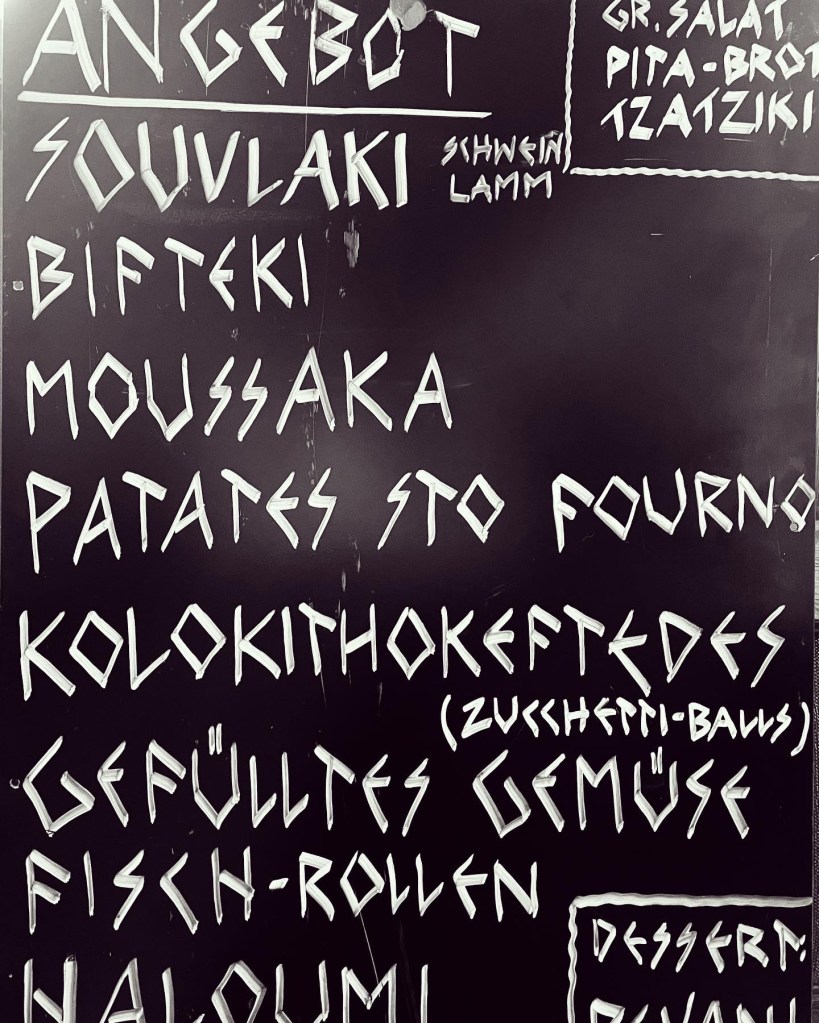 ANGEBOT
GR. SALAT
PITA-BROT
TZATZIKI
SOUVLAKI SCHWEIN
LAMM
BIFTEKI
MOUSSAKA
PATATES STO FOURNO
KOLOKITHOKEFTEDES
(ZUCCHETTI-BALLS)
GEFÜLLTES GEMÜSE
FISCH-ROLLEN
HALOUMI
DESSERT: